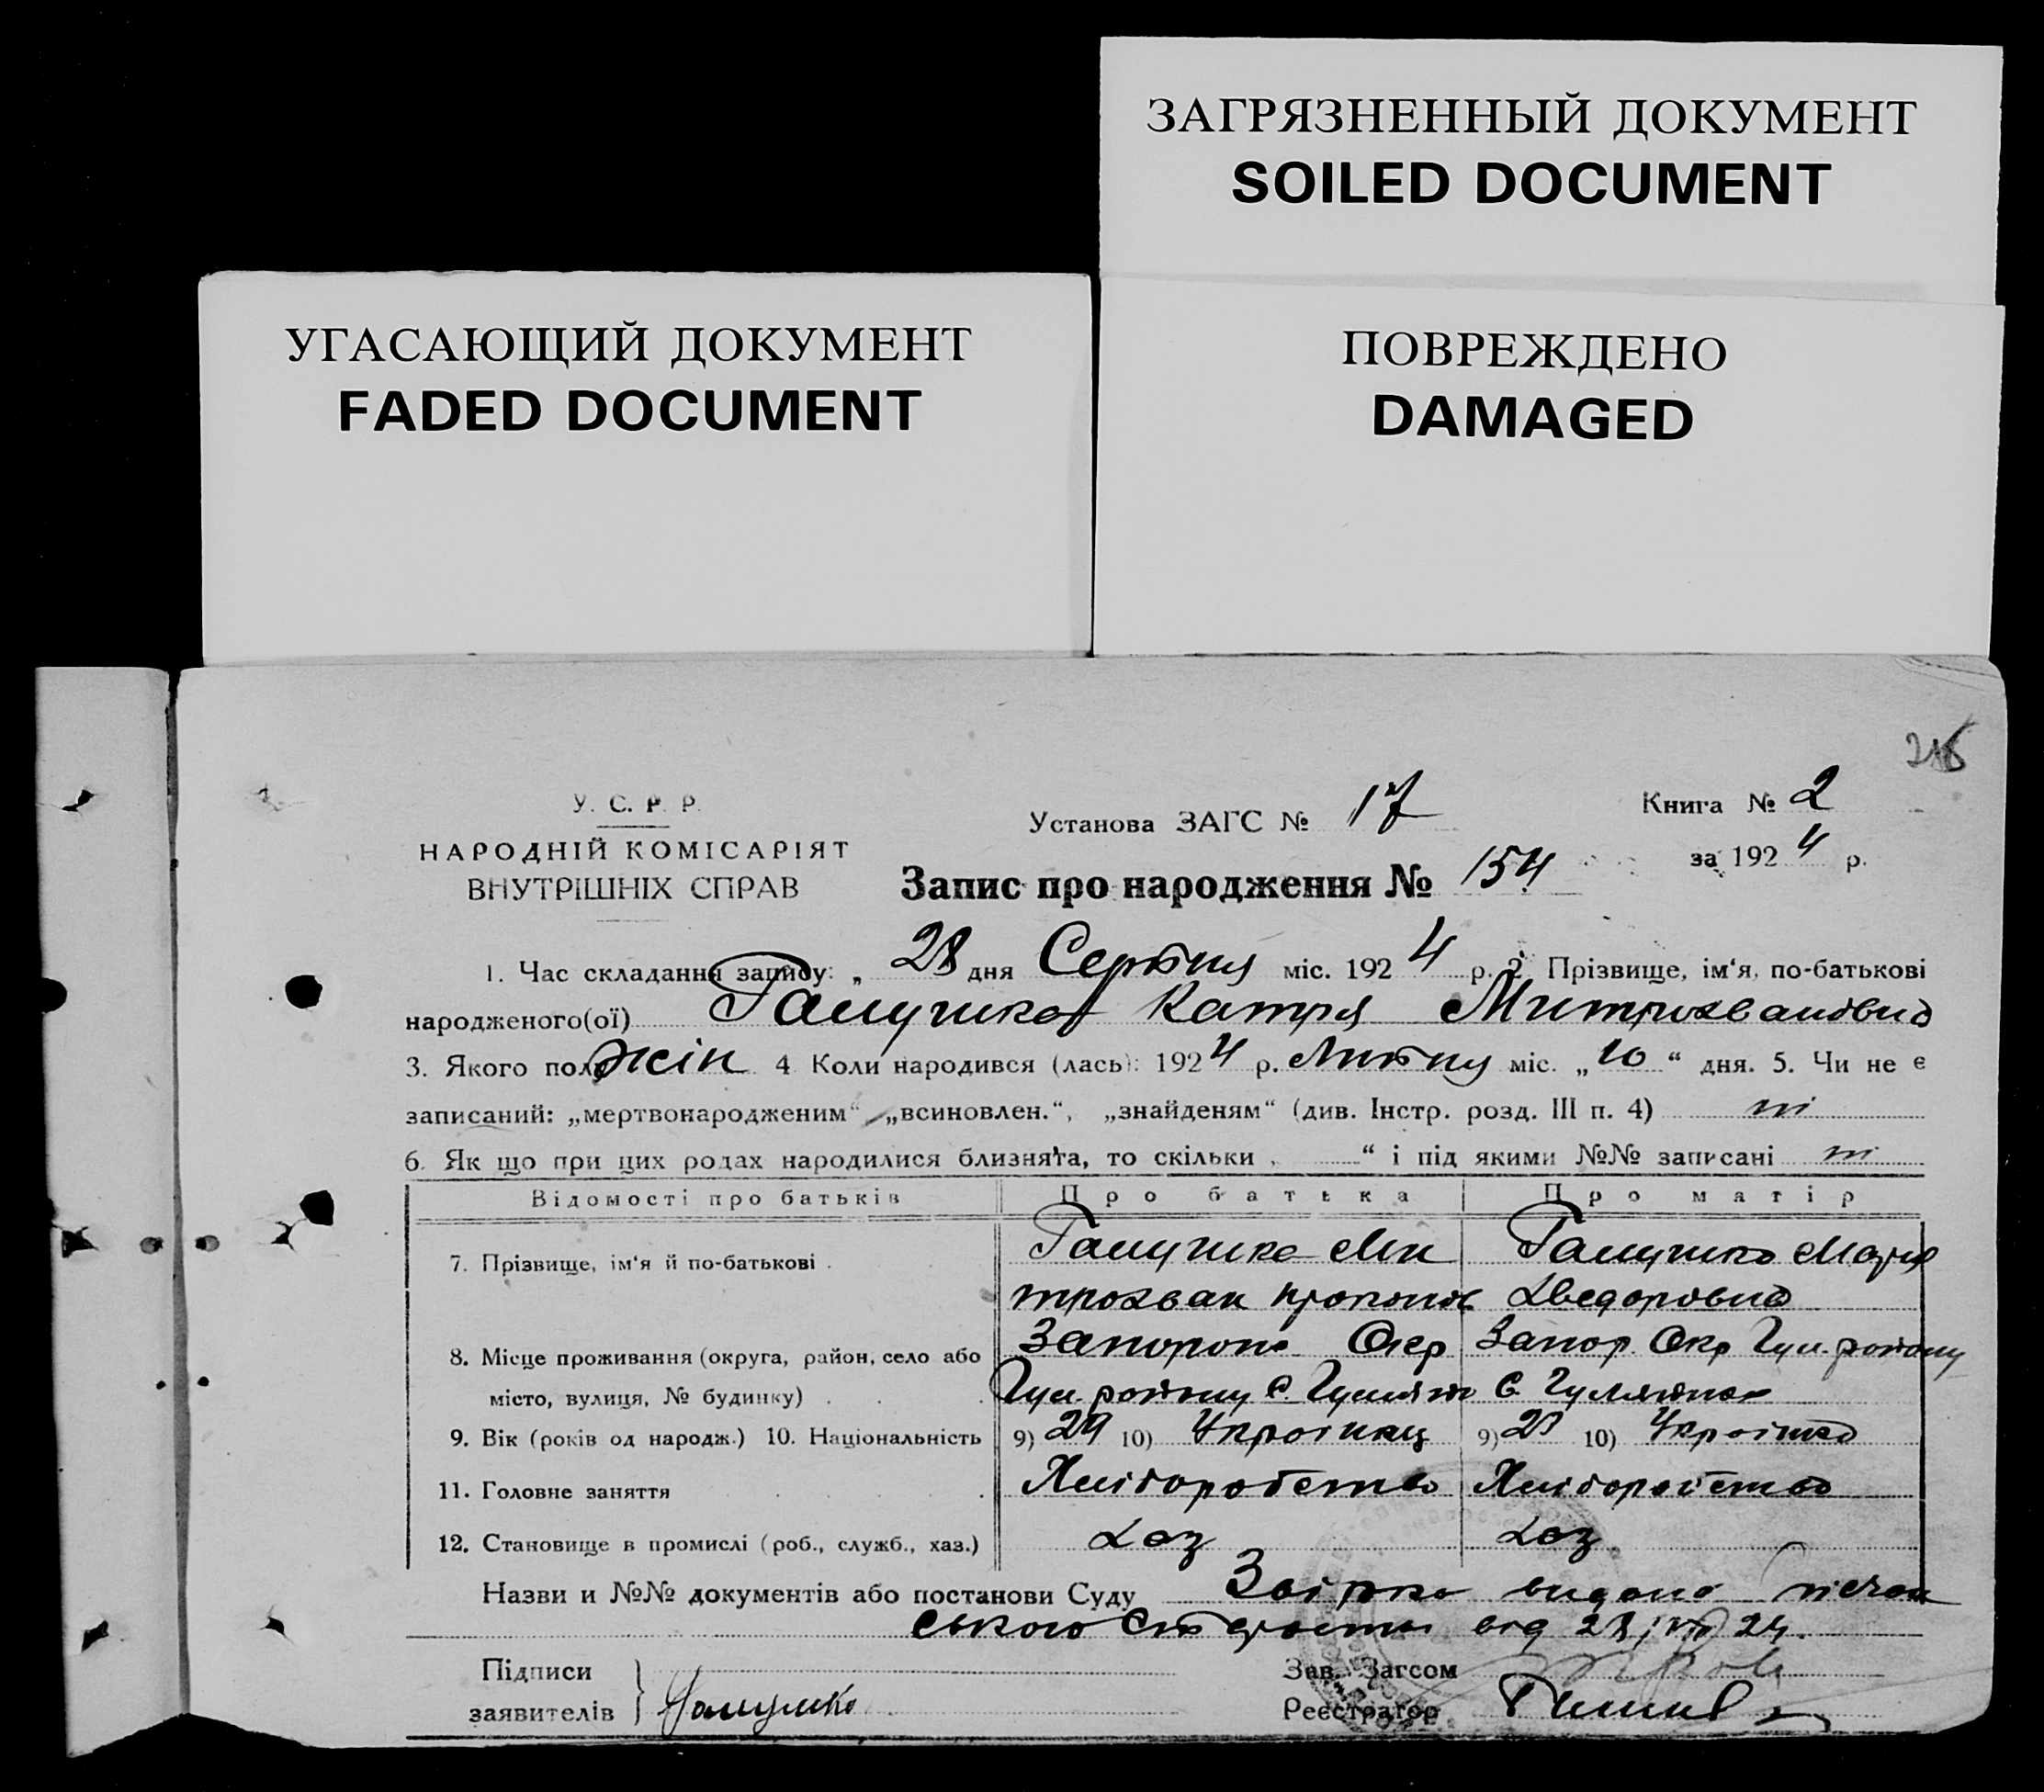 ЗАГРЯЗНЕННЫЙ ДОКУМЕНТ
SOILED DOCUMENT
УГАСАЮЩИЙ ДОКУМЕНТ
FADED DOCUMENT
ПОВРЕЖДЕНО
DAMAGED
У. С. Р. Р.
НАРОДНІЙ КОМІСАРІЯТ
ВНУТРІШНІХ СПРАВ
Установа ЗАГС № 17
Книга № 2
за 1924 р.
Запис про народження № 154
1. Час складання запису: „ 28 дня Серпня міс. 1924 р. 2. Прізвище, ім'я, по-батькові
народженого(ої) Галушка Катря Митрохвановна
3. Якого полу жін 4 Коли народився (лась): 1924 р. Липня міс. „10“ дня. 5. Чи не є
записаний: „мертвонародженим“ „всиновлен.“, „знайденям“ (див. Інстр. розд. III п. 4) ні
6. Як що при цих родах народилися близнята, то скільки „ “ і під якими №№ записані ні
Відомості про батьків Про батька Про матір
7. Прізвище, ім'я й по-батькові . Галушка Ми Галушка Марія
трохван Хведоровна
8. Місце проживання (округа, район, село або Запорож Окр Запор. Окр Гул. району
місто, вулиця, № будинку) . . . Гул. району с. Гуляй с. Гуляйпол
9. Вік (років од народж.) 10. Національність 9) 29 10) Українец 9) 10) Українка
11. Головне заняття . . . Хліборобство Хліборобство
12. Становище в промислі (роб., служб., хаз.) Хаз Хаз
Назви и №№ документів або постанови Суду видана
ського від 28/VIII 24.
Підписи
заявителів } Галушко
Зав. Загсом
Реєстратор